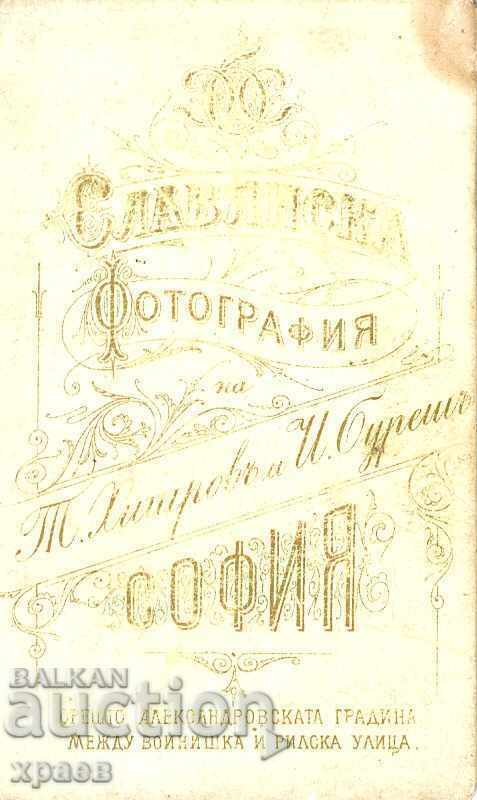 СЛАВЯНСКА
ФОТОГРАФИЯ
на
Т. Хитровъ и И. Бурешъ
СОФИЯ
BALKAN
auction
СРЕЩО АЛЕКСАНДРОВСКАТА ГРАДИНА
МЕЖДУ ВОИНИШКА И РИЛСКА УЛИЦА.
храев